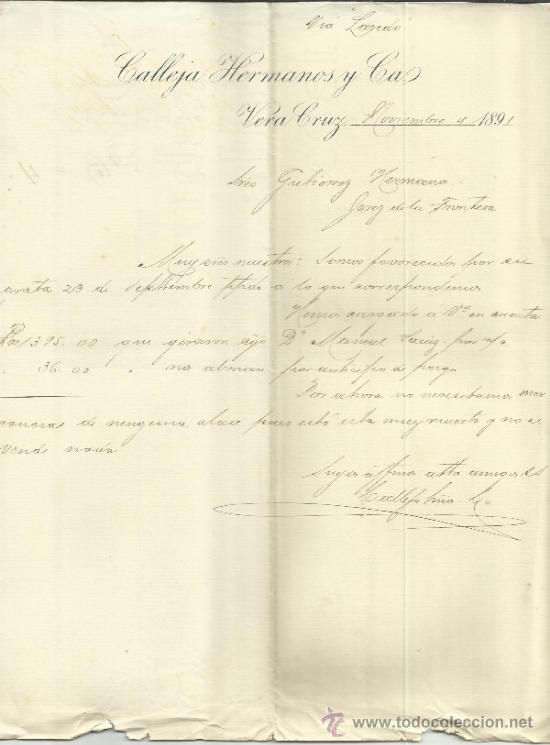 Via "Laredo"
Calleja Hermanos y Ca
Vera Cruz, Noviembre 4 1891
Sres Gutierrez Hermano
Jerez de la Frontera
Muy srs nuestros: Somos favorecidos por su
grata 23 de Septiembre ppdo a la que correspondemos
Hemos cargado a Vs en cuenta
1395.00 que giraron a/o Dn Manuel por n/o
36.00 " nos abonan por anticipo de pago
Por ahora no necesitamos mer
cancias de ninguna clase pues esto esta muy muerto y no se
vende nada
Suyos affmos atto amigos
Calleja Hnos Ca
www.todocoleccion.net